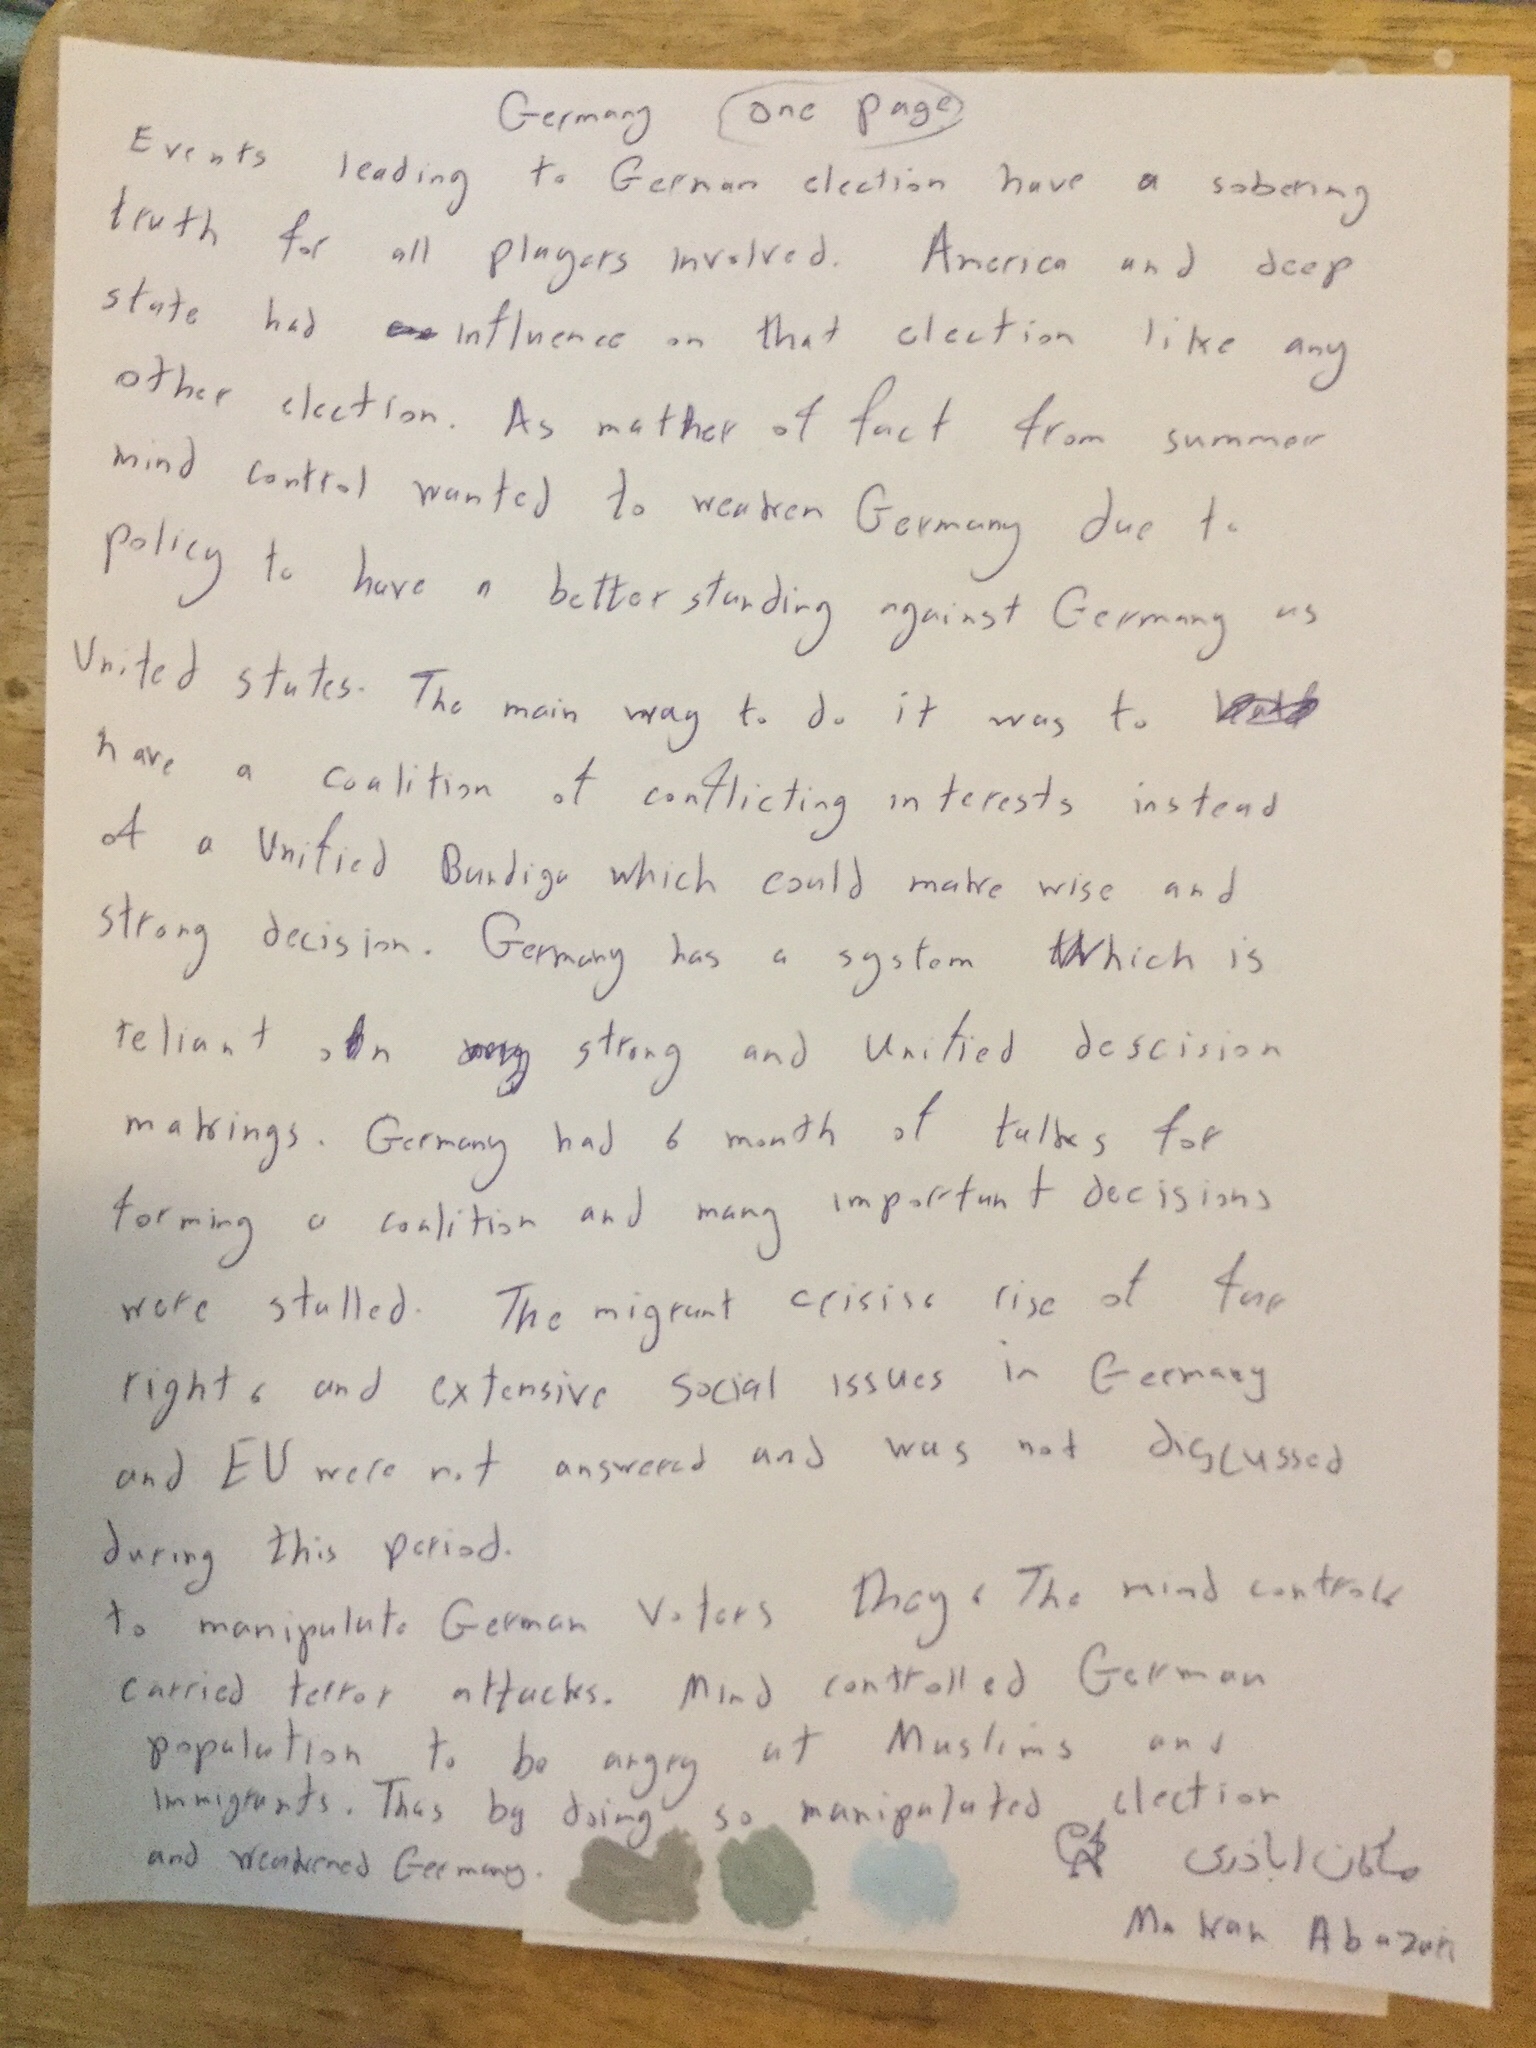 Germany one page
Events leading to German election have a sobering
truth for all players involved. America and deep
state had influence on that election like any
other election. As mather of fact from summer
mind control wanted to weaken Germany due to
policy to have a better standing against Germany as
United states. The main way to do it was to
have a coalition of conflicting interests instead
of a Unified Bundiga which could make wise and
strong decision. Germany has a system Which is
reliant on strong and Unified descision
makings. Germany had 6 month of talks for
forming a coalition and many important decisions
were stalled. The migrant crisis, rise of far
right, and extensive social issues in Germany
and EU were not answered and was not discussed
during this period.
to manipulate German Voters they, The mind controls
carried terror attacks. Mind controlled German
population to be angry at Muslims and
Immigrants. Thus by doing so manipulated election
and weakened Germany.
مکان اباذری
Makan Abazari